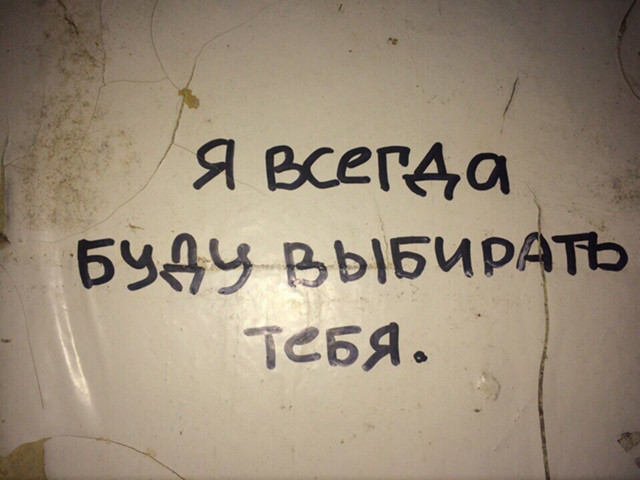 Я ВСЕГДА
БУДУ ВЫБИРАТЬ
ТЕБЯ.